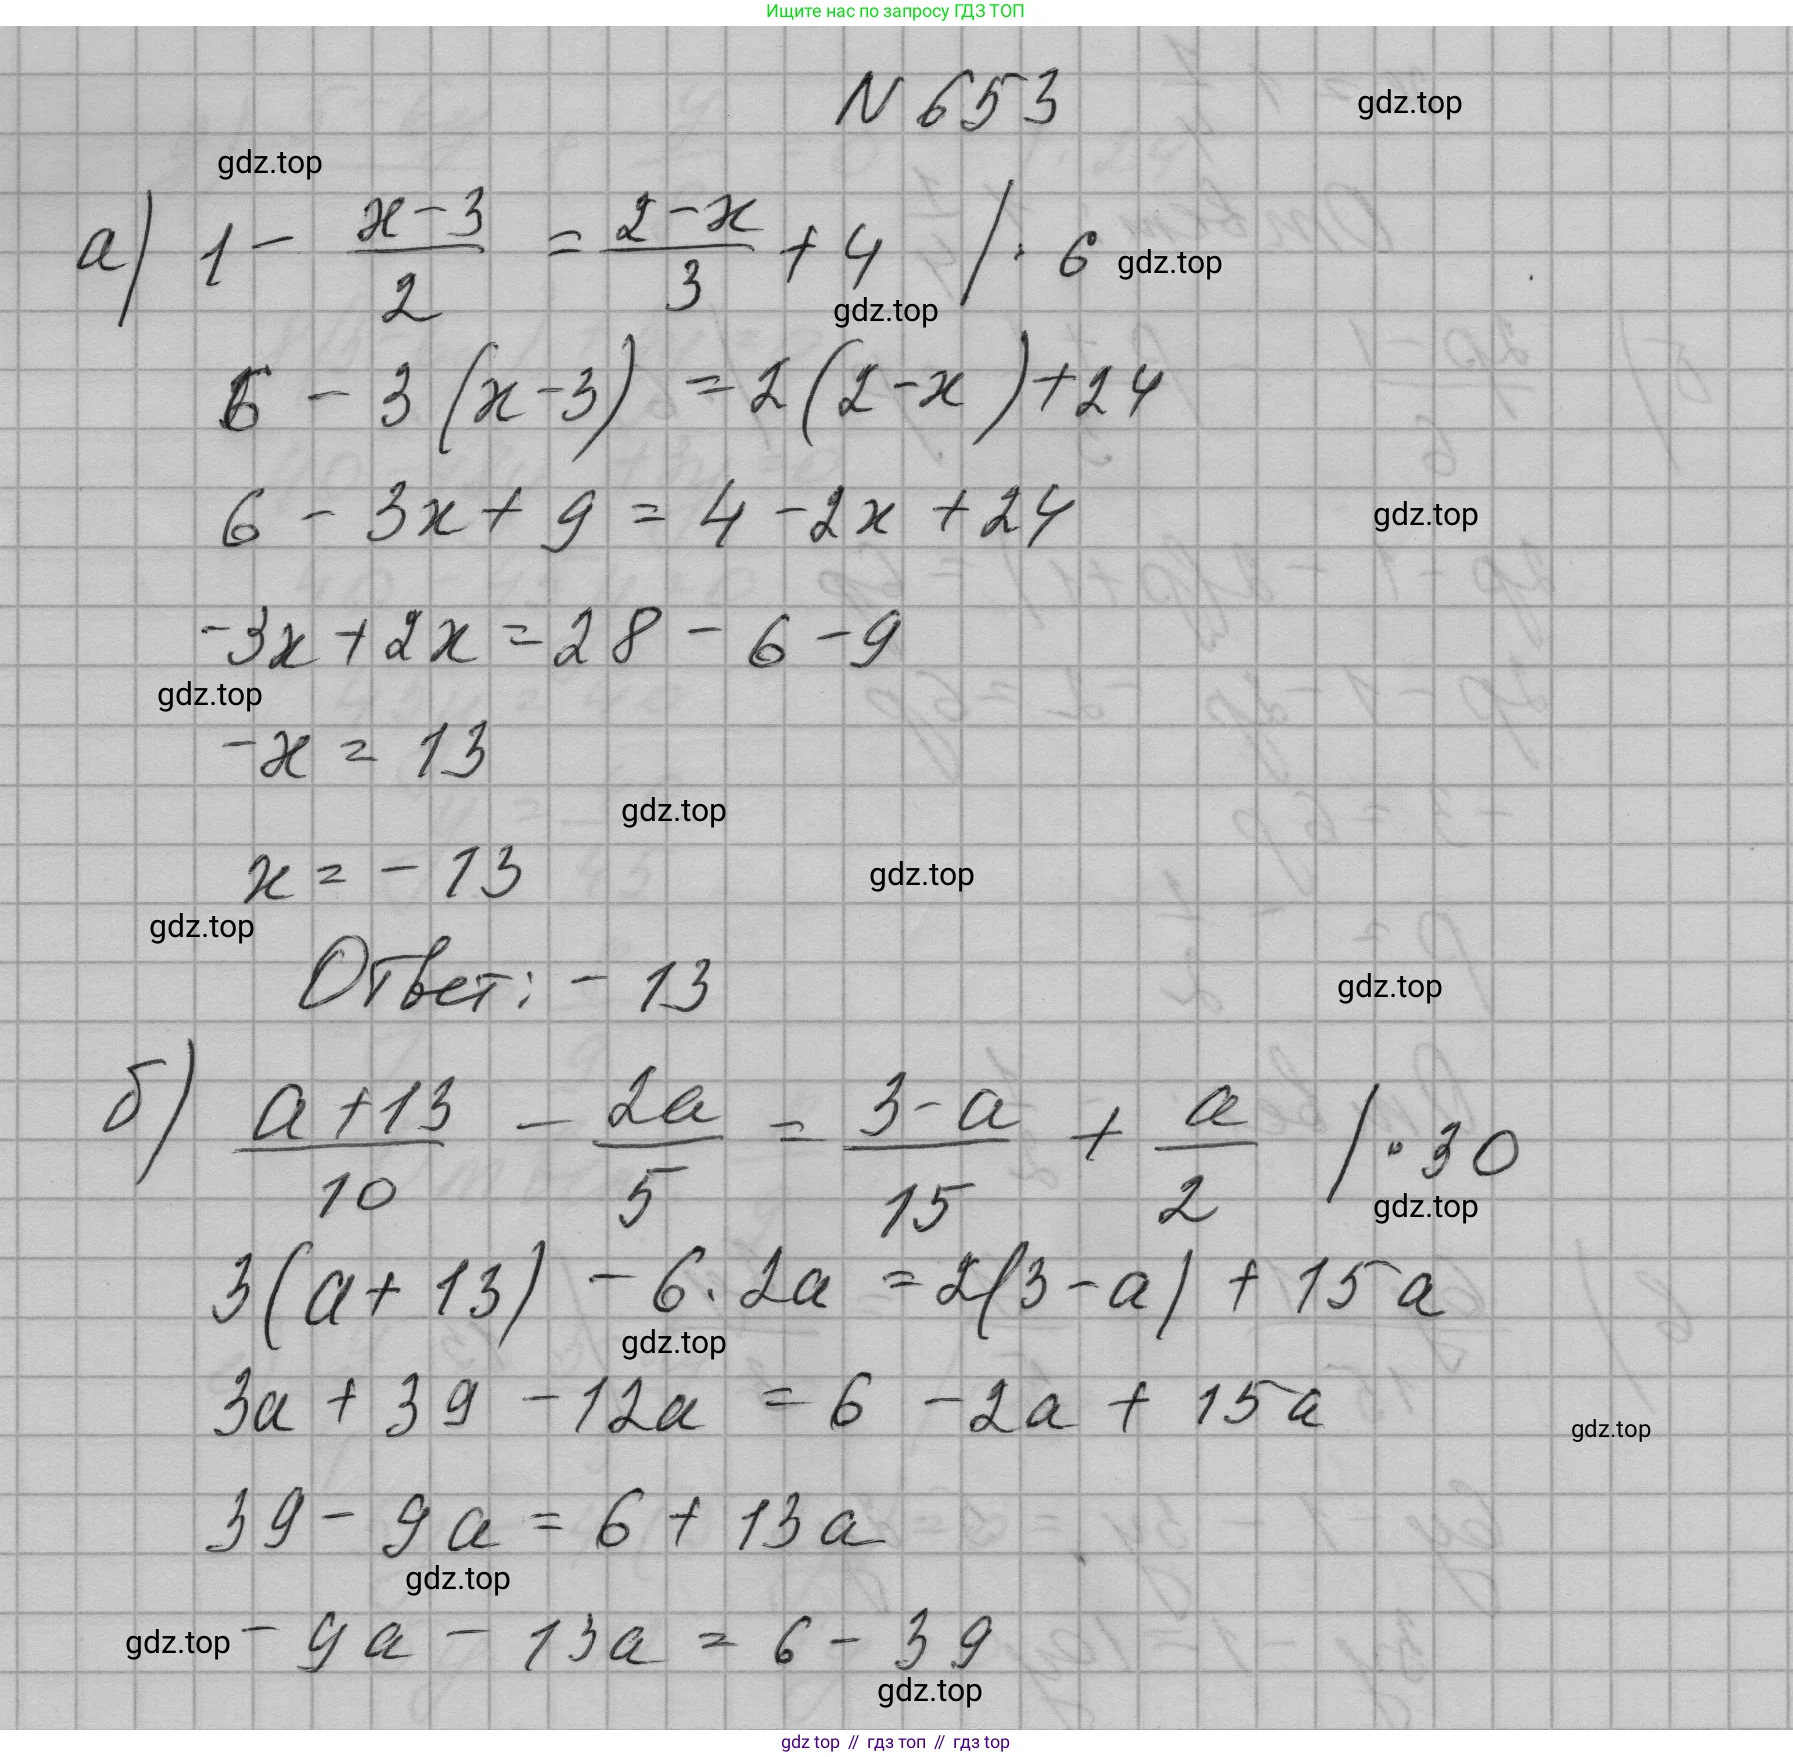 Ищите нас по запросу ГДЗ ТОП
N 653
gdz.top
gdz.top
а) 1 - (x-3)/2 = (2-x)/3 + 4 / · 6
gdz.top
gdz.top
6 - 3(x-3) = 2(2-x)+24
6 - 3x + 9 = 4 - 2x + 24
gdz.top
-3x + 2x = 28 - 6 - 9
gdz.top
-x = 13
gdz.top
x = - 13
gdz.top
gdz.top
Ответ: - 13
gdz.top
б) (a+13)/10 - 2a/5 = (3-a)/15 + a/2 / · 30
gdz.top
3(a+13) - 6·2a = 2(3-a) + 15a
gdz.top
3a + 39 - 12a = 6 - 2a + 15a
gdz.top
39 - 9a = 6 + 13a
gdz.top
gdz.top
- 9a - 13a = 6 - 39
gdz.top
gdz top // гдз топ // гдз top